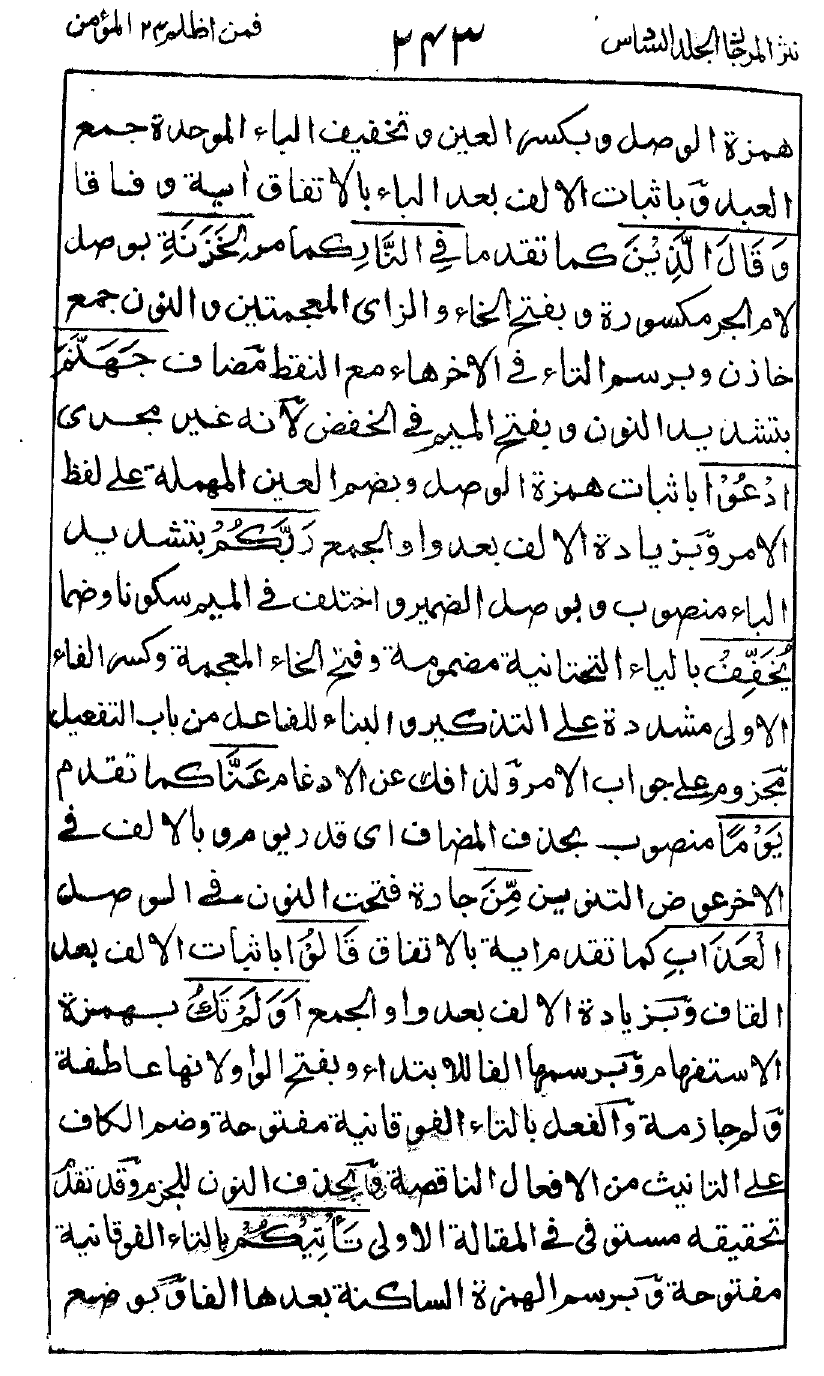 نثر المرجان الجلد السادس
٢٤٣
فمن اظلم ٢٣ المؤمن
همزة الوصل وبكسر العين وتخفيف الباء الموحدة جمع
العبد وباثبات الالف بعد الباء بالاتفاق اٰية وفاقا
وَقَالَ الَّذِيْنَ كما تقدما فِي النَّارِ كما مر لِخَزَنَةِ بوصل
لام الجر مكسورة وبفتح الخاء والزاى المعجمتين والنون جمع
خازن وبرسم التاء في الاخر هاء مع النقط مضاف جَهَنَّمَ
بتشديد النون وبفتح الميم في الخفض لانه غير مجرى
ادْعُوْا باثبات همزة الوصل وبضم العين المهملة على لفظ
الامر وبزيادة الالف بعد واو الجمع رَبَّكُمْ بتشديد
الباء منصوب وبوصل الضمير واختلف في الميم سكونا وضما
يُخَفِّفْ بالياء التحتانية مضمومة وفتح الخاء المعجمة وكسر الفاء
الاولى مشددة على التذكير والبناء للفاعل من باب التفعيل
مجزوم على جواب الامر ولذا فك عن الادغام عَنَّا كما تقدم
يَوْمًا منصوب بحذف المضاف اى قدر يوم وبالالف في
الاخر عوض التنوين مِّنَ جارة فتحت النون في الوصل
الْعَذَابِ كما تقدم اية بالاتفاق قَالُوْا باثبات الالف بعد
القاف وبزيادة الالف بعد واو الجمع اَوَلَمْ تَكُ بهمزة
الاستفهام وبرسمها الفا للابتداء وبفتح الواو لانها عاطفة
ولم جازمة والفعل بالتاء الفوقانية مفتوحة وضم الكاف
على التانيث من الافعال الناقصة وبحذف النون للجزم وقد تقدم
تحقيقه مستوفى في المقالة الاولى تَأْتِيْكُمْ بالتاء الفوقانية
مفتوحة وبرسم الهمزة الساكنة بعدها الفا وبوضع